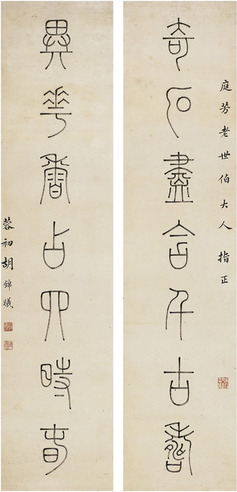 庭芳老世伯大人 指正
奇石盡含千古秀
異華香占四時春
蓉初胡錦